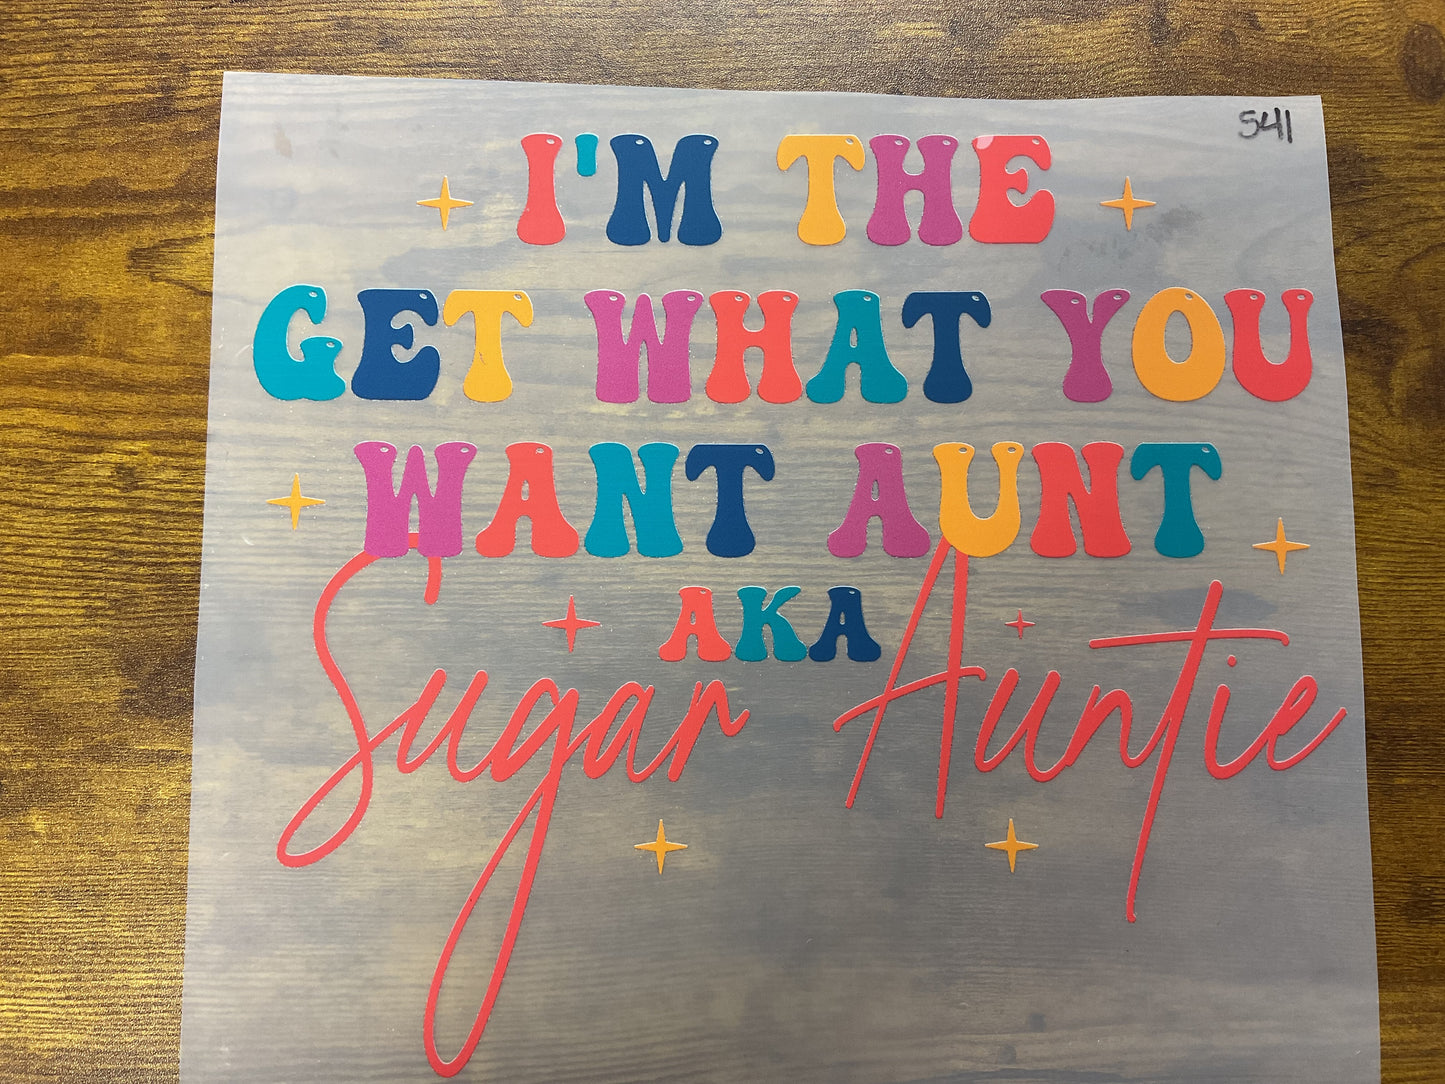 541
I'M THE
GET WHAT YOU
WANT AUNT
AKA
Sugar Auntie